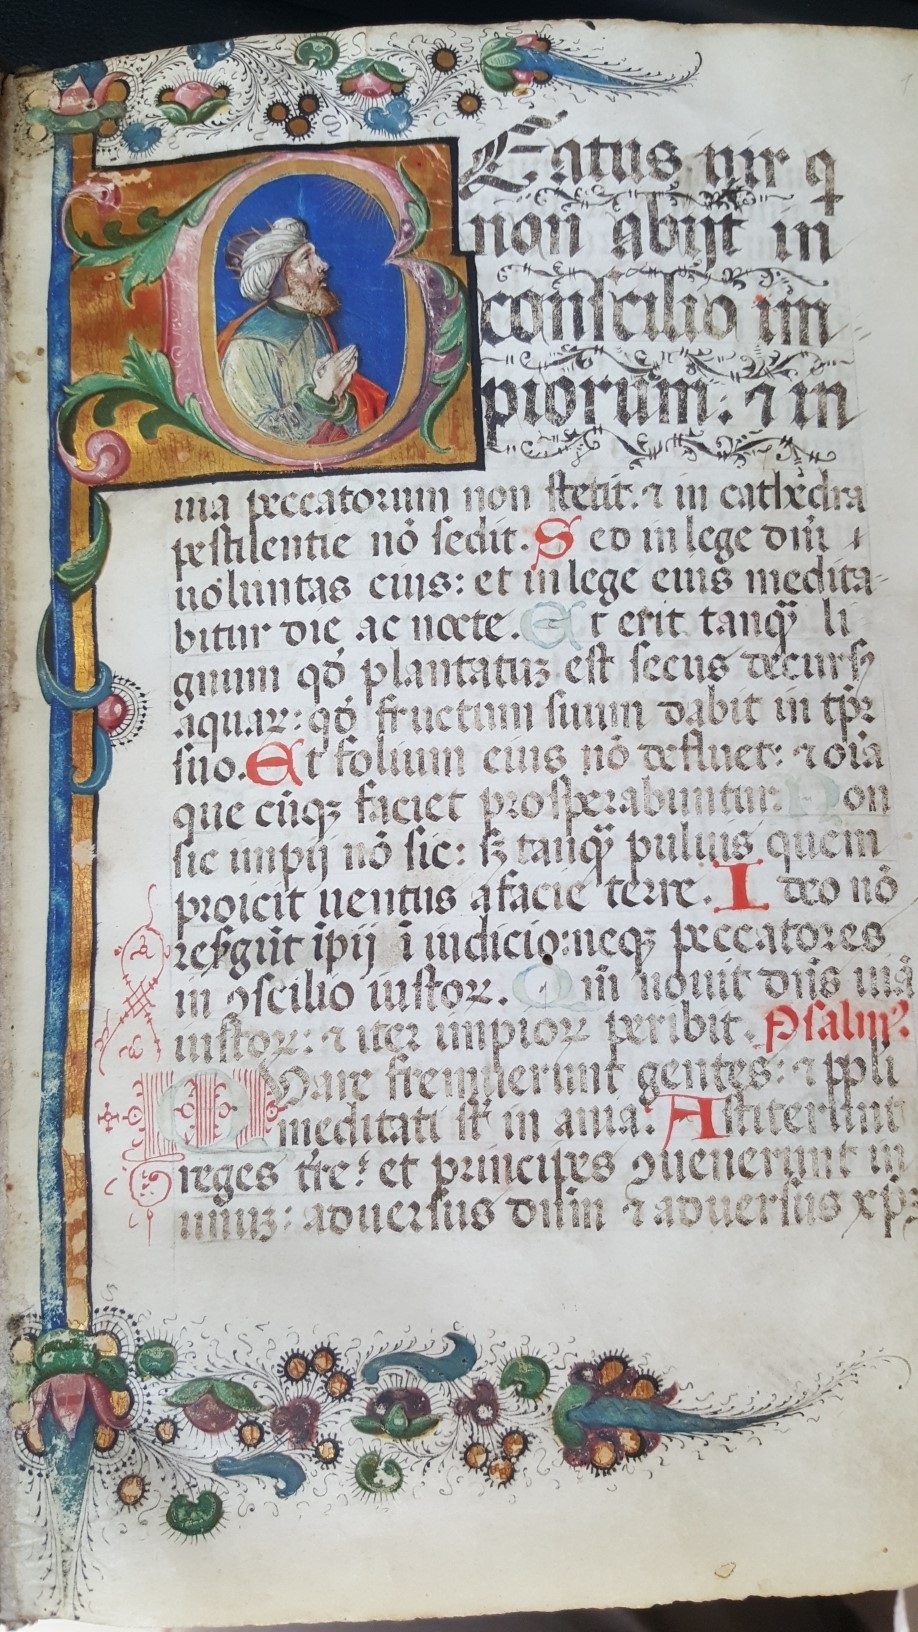 Beatus uir q
non abijt in
conscilio im
piorum: ⁊ in
uia peccatorum non stetit: ⁊ in cathedra
pestilentie nō sedit. Sed in lege dn̄i
uoluntas eius: et in lege eius medita
bitur die ac nocte. Et erit tanqȝ li
gnum qđ plantatuȝ est secus decursꝰ
aquaꝝ: qđ fructum suum dabit in tp̄ꝛ
suo. Et folium eius nō defluet: ⁊ oīa
que cūqȝ faciet prosperabuntur. Non
sic impij nō sic: sȝ tanqȝ puluis quem
proicit uentus a facie terre. Ideo nō
resurgūt īpij ī iudicio: neqȝ peccatores
in ꝯscilio iustoꝝ. Qm̄ nouit dn̄s uiā
iustoꝝ: ⁊ iter impioꝝ peribit. Psalmꝰ
Quare fremuerunt gentes: ⁊ ppl̄i
meditati st̄ in ania: Astiterunt
reges tr̄e: et principes ꝯuenerunt in
unuȝ: aduersus dn̄m ⁊ aduersus xp̄ꝫ